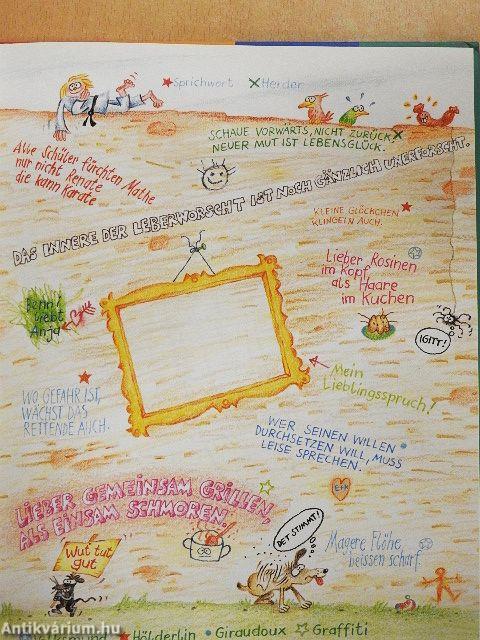 ★Sprichwort ✕Herder
SCHAUE VORWÄRTS, NICHT ZURÜCK✕
NEUER MUT IST LEBENSGLÜCK.
Alle Schüler fürchten Mathe
nur nicht Renate
die kann Karate
DAS INNERE DER LEBERWORSCHT IST NOCH GÄNZLICH UNERFORSCHT.
KLEINE GLÖCKCHEN
KLINGELN AUCH.
Lieber Rosinen
im Kopf,
als Haare
im Kuchen
IGITT!
Benni
liebt
Anja
Mein
Lieblingsspruch!
WO GEFAHR IST,
WÄCHST DAS
RETTENDE AUCH.
WER SEINEN WILLEN
DURCHSETZEN WILL, MUSS
LEISE SPRECHEN.
E+K
LIEBER GEMEINSAM GRILLEN,
ALS EINSAM SCHMOREN.
DET STIMMT!
Wut tut
gut
Magere Flöhe
beissen scharf.
★Hölderlin ●Giraudoux ☆Graffiti
Antikvárium.hu